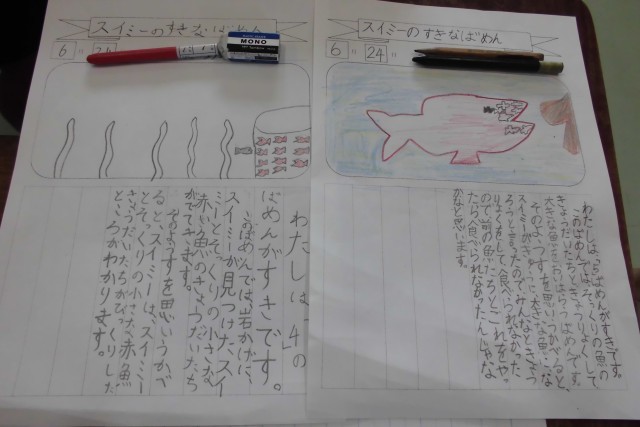 スイミーのすきなばめん
6
24
MONO
わたしは、「4の
ばめんがすきです。
このばめんでは岩かげに、
スイミーが見つけた、スイ
ミーとそっくりの小さな
赤い魚のきょうだいたち
がでてきます。
そのようすを思いうかべ
ると、スイミーは、スイミー
とそっくりの小さな赤魚
きょうだいたちがびっくりした
ところがわかります。
スイミーのすきなばめん
6
24
わたしは、ばめんがすきです。
このばめんでは、そっくりの魚の
きょうだいたちときょうりょくして、
大きな魚をおいはらうばめんです。
そのようすを思いうかべると、
スイミーが大きな魚に
ろうと言ったのでみんなときょう
りょくをして、食べられなかった
ので、前の魚たちもこれをや
ったら食べられなかったんじゃな
いかなと思います。